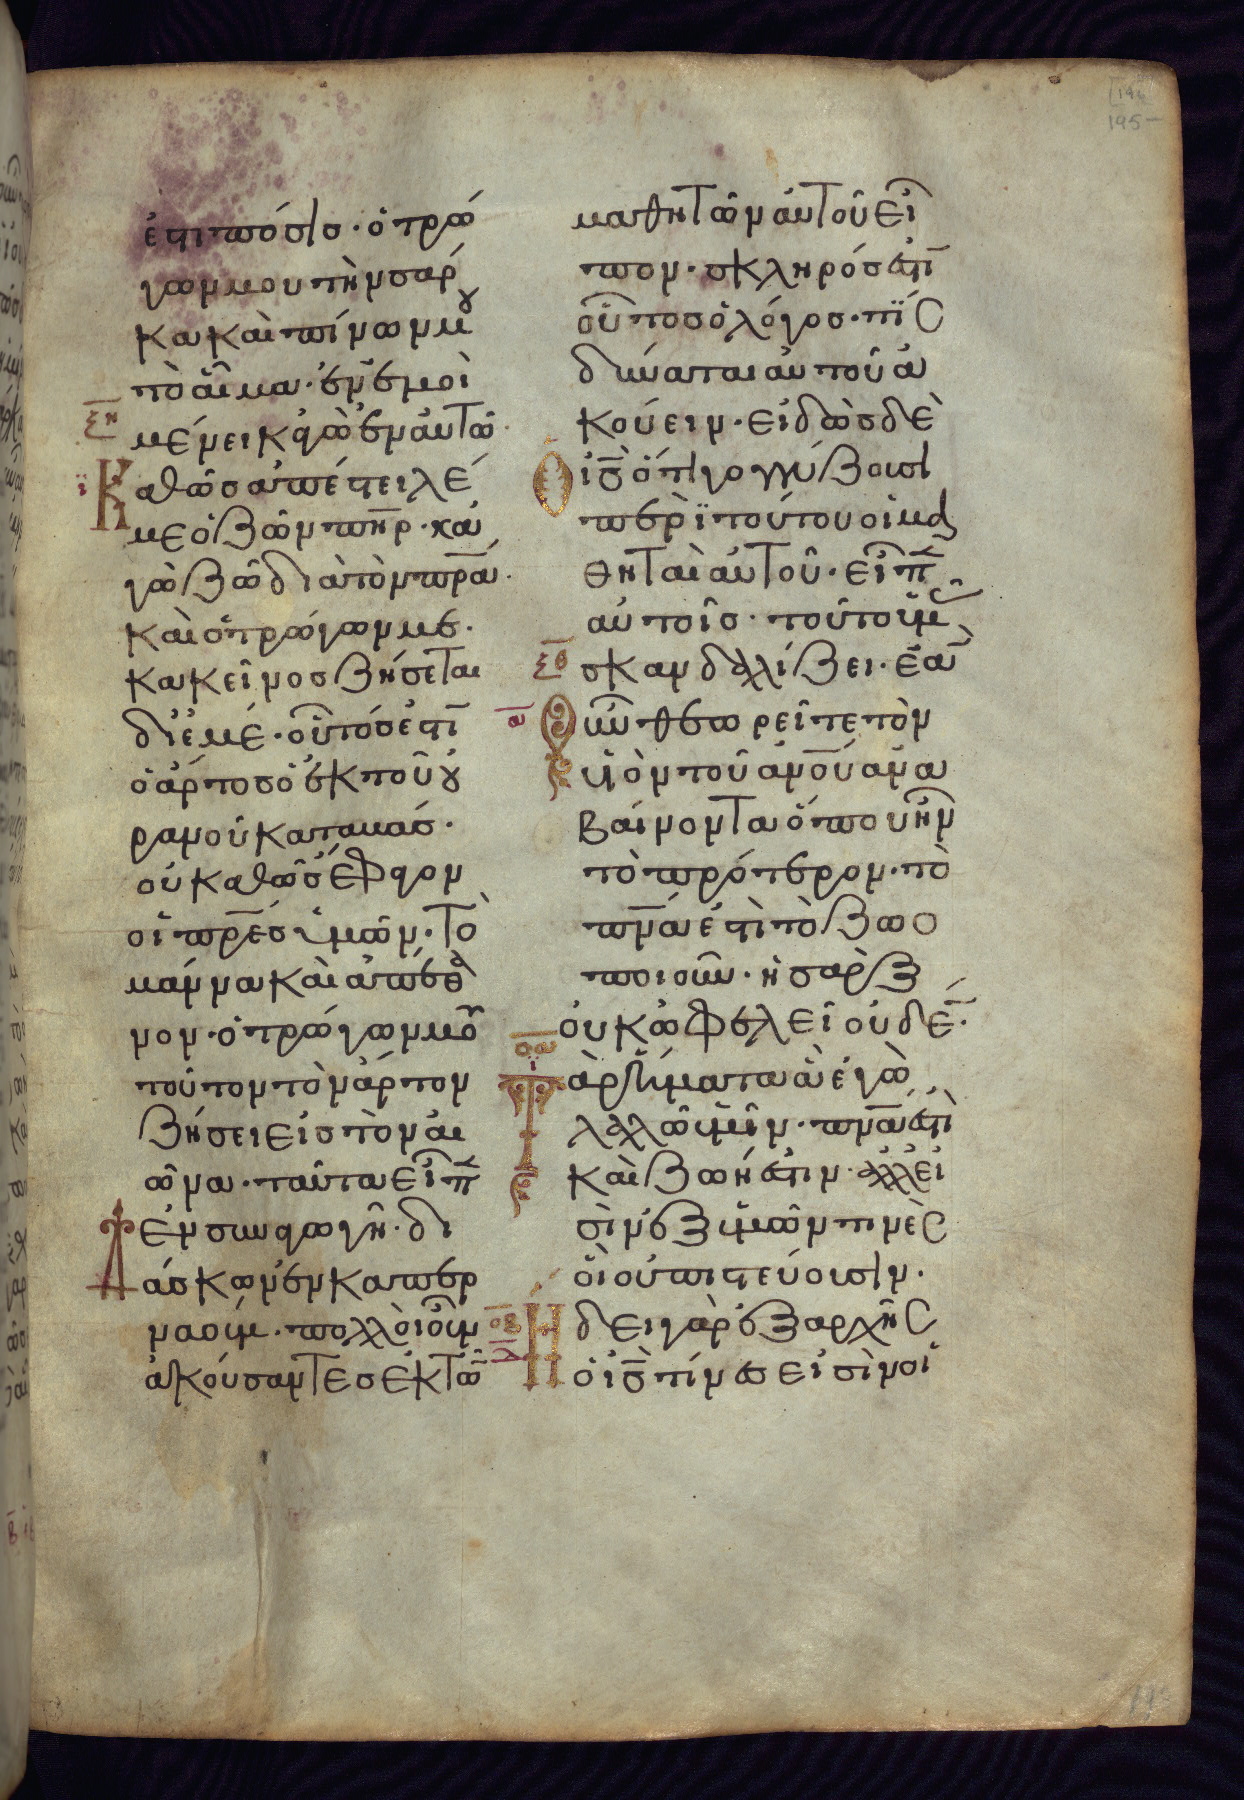 ἐστι πόσις· ὁ τρώ
γων μου τὴν σάρ
κα καὶ πίνων μȣ
τὸ αἷμα· ἐν ἐμοὶ
ξη
μένει κἀγὼ ἐν αὐτῶ·
ι
Καθὼς ἀπέστειλέ
με ὁ ζῶν πηρ· κα
γὼ ζῶ διὰ τὸν πρα·
καὶ ὁ τρώγων με·
κακεῖνος ζήσεται
δι' ἐμέ· οὗτός ἐστι
ὁ ἄρτος ὁ ἐκ τοῦ ȣ
ρανοῦ καταβάς·
οὐ καθὼς ἔφαγον
οἱ πρες ὑμῶν· τὸ
μάννα καὶ ἀπέθα
νον· ὁ τρώγων μου
τοῦτον τὸν ἄρτον
ζήσει εἰς τὸν αἰ
ῶνα· ταῦτα εἶπ
Ἐν συναγωγῆ· δι
δάσκων ἐν καπερ
ναούμ· πολλοὶ οὖν
ἀκούσαντες ἐκ τῶ
μαθητῶν αὐτοῦ εἶ
πον· σκληρός ἐστι
οὗτος ὁ λόγος· τίς
δύναται αὐτοῦ ἀ
κούειν· εἰδὼς δὲ
Ὁ ις ὅτι γογγύζουσι
περὶ τούτου οἱ μα
θηταὶ αὐτοῦ· εἶπ
αὐτοῖς· τοῦτο ὑμᾶς
ξθ
σκανδαλίζει· ἐὰ
α
Οὖν θεωρεῖτε τὸν
υἱὸν τοῦ ανου ανα
βαίνοντα ὅπου ἦν
τὸ πρότερον· τὸ
πνα ἐστὶ τὸ ζωο
ποιοῦν· ἡ σὰρξ
οὐκ ὠφελεῖ οὐδέ·
οα
ι
Τὰ ρήματα ἃ ἐγὼ
λαλῶ ὑμῖν· πνα ἐστὶ
καὶ ζωή ἐστιν· ἀλλ' εἰ
σὶν ἐξ ὑμῶν τινὲς
οἳ οὐ πιστεύουσιν·
οβ
δ
Ἤδει γὰρ ἐξ ἀρχῆς
ὁ ις τίνες εἰσὶν οἱ
195